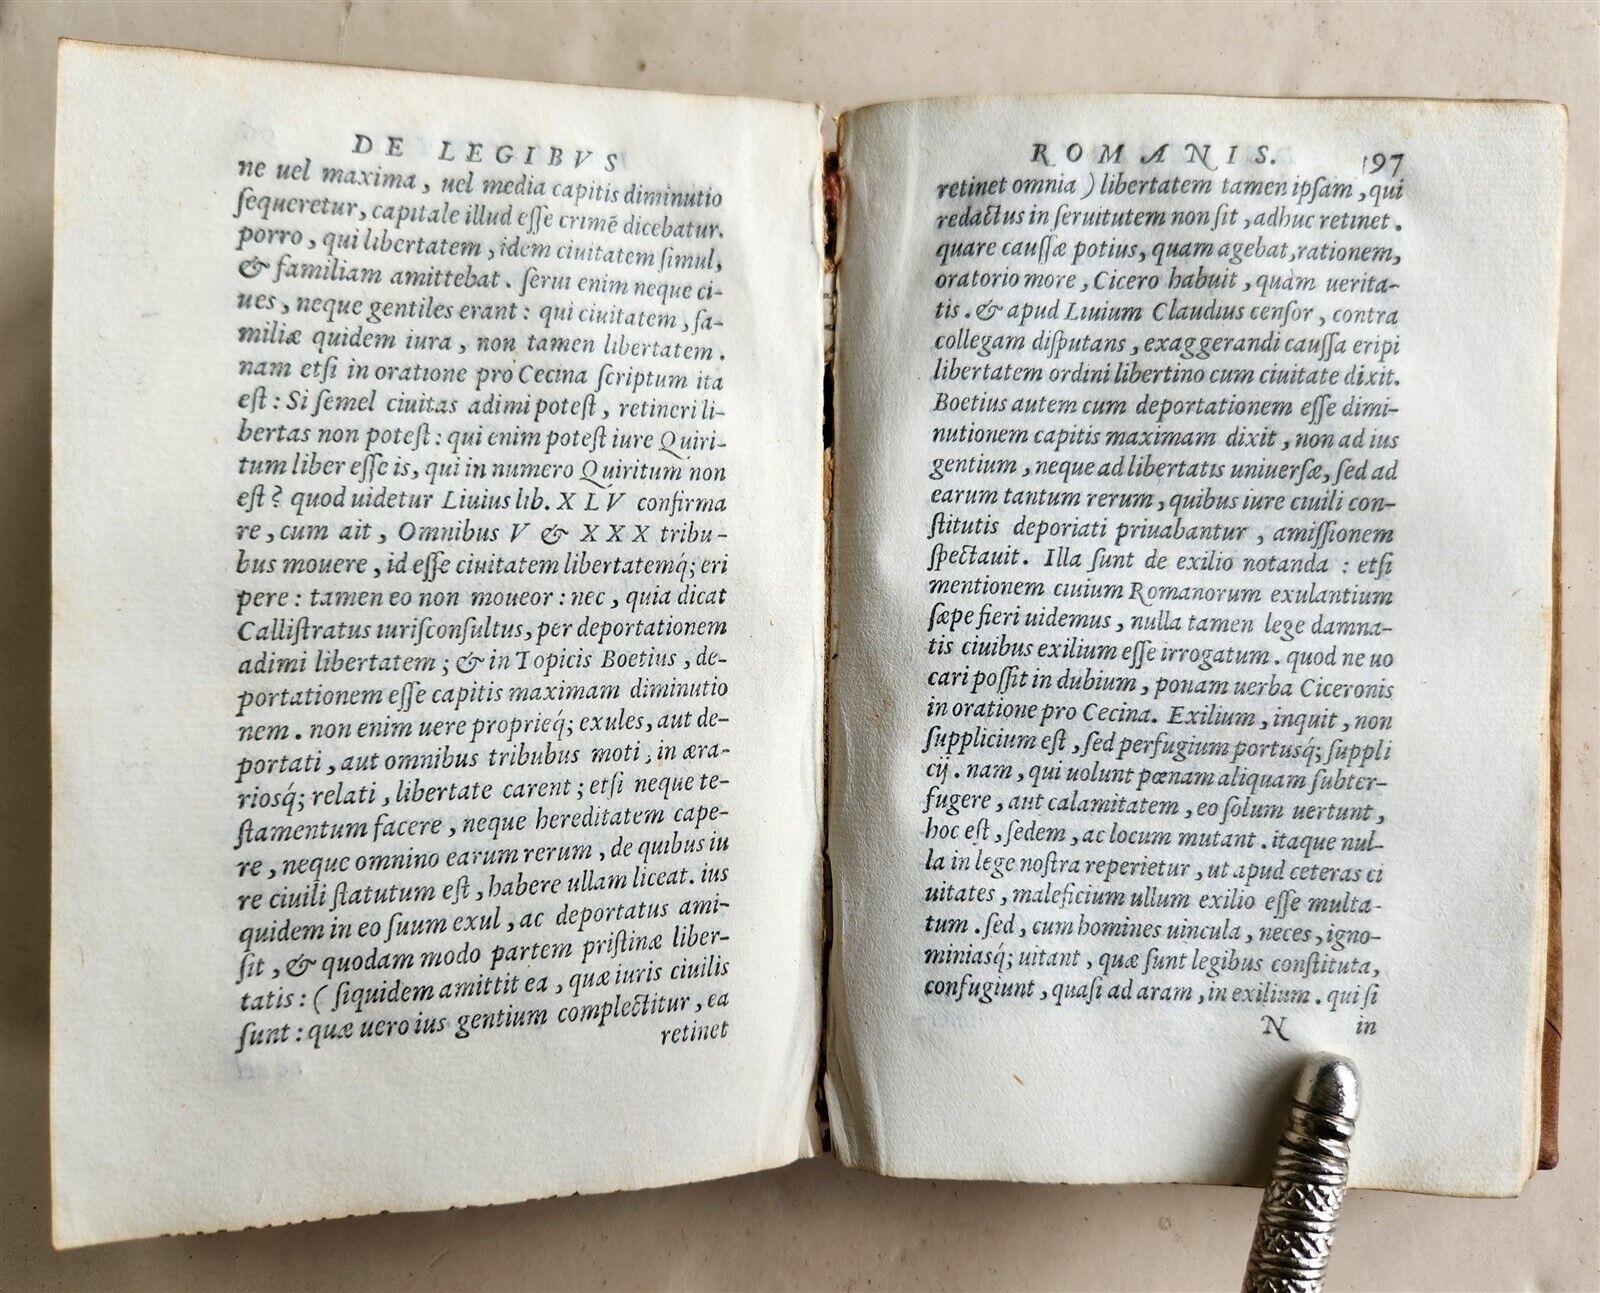 DE LEGIBVS
ne uel maxima, uel media capitis diminutio
ſequeretur, capitale illud eſſe crimẽ dicebatur.
porro, qui libertatem, idem ciuitatem ſimul,
& familiam amittebat. ſerui enim neque ci-
ues, neque gentiles erant: qui ciuitatem, fa-
miliæ quidem iura, non tamen libertatem.
nam etſi in oratione pro Cecina ſcriptum ita
eſt: Si ſemel ciuitas adimi poteſt, retineri li-
bertas non poteſt: qui enim poteſt iure Quiri-
tum liber eſſe is, qui in numero Quiritum non
eſt? quod uidetur Liuius lib. XLV confirma
re, cum ait, Omnibus V & XXX tribu-
bus mouere, id eſſe ciuitatem libertatemq́; eri
pere: tamen eo non moueor: nec, quia dicat
Calliſtratus iuriſconſultus, per deportationem
adimi libertatem; & in Topicis Boetius, de-
portationem eſſe capitis maximam diminutio
nem. non enim uere proprieq́; exules, aut de-
portati, aut omnibus tribubus moti, in æra-
riosq́; relati, libertate carent; etſi neque te-
ſtamentum facere, neque hereditatem cape-
re, neque omnino earum rerum, de quibus iu
re ciuili ſtatutum eſt, habere ullam liceat. ius
quidem in eo ſuum exul, ac deportatus ami-
ſit, & quodam modo partem priſtinæ liber-
tatis: (ſiquidem amittit ea, quæ iuris ciuilis
ſunt: quæ uero ius gentium complectitur, ea
retinet
ROMANIS. 197
retinet omnia) libertatem tamen ipſam, qui
redactus in ſeruitutem non ſit, adhuc retinet.
quare cauſſæ potius, quam agebat, rationem,
oratorio more, Cicero habuit, quàm uerita-
tis. & apud Liuium Claudius cenſor, contra
collegam diſputans, exaggerandi cauſſa eripi
libertatem ordini libertino cum ciuitate dixit.
Boetius autem cum deportationem eſſe dimi-
nutionem capitis maximam dixit, non ad ius
gentium, neque ad libertatis uniuerſæ, ſed ad
earum tantum rerum, quibus iure ciuili con-
ſtitutis deportati priuabantur, amiſſionem
ſpectauit. Illa ſunt de exilio notanda: etſi
mentionem ciuium Romanorum exulantium
ſæpe fieri uidemus, nulla tamen lege damna-
tis ciuibus exilium eſſe irrogatum. quod ne uo
cari poſſit in dubium, ponam uerba Ciceronis
in oratione pro Cecina. Exilium, inquit, non
ſupplicium eſt, ſed perfugium portusq́; ſuppli
cij. nam, qui uolunt pœnam aliquam ſubter-
fugere, aut calamitatem, eo ſolum uertunt,
hoc eſt, ſedem, ac locum mutant. itaque nul-
la in lege noſtra reperietur, ut apud ceteras ci
uitates, maleficium ullum exilio eſſe multa-
tum. ſed, cum homines uincula, neces, igno-
miniasq́; uitant, quæ ſunt legibus conſtituta,
confugiunt, quaſi ad aram, in exilium. qui ſi
N in